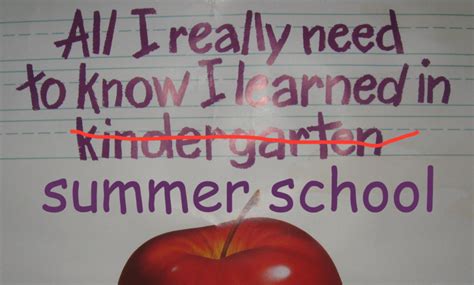 All I really need
to know I learned in
kindergarten
summer school